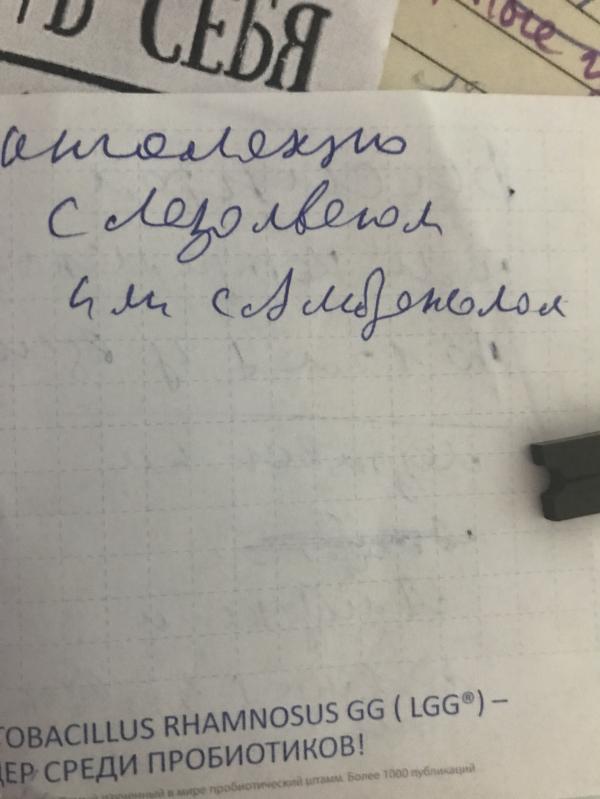 СЕБЯ
с Лазолваном
или с Амброксолом
TOBACILLUS RHAMNOSUS GG ( LGG®) –
ДЕР СРЕДИ ПРОБИОТИКОВ!
в мире пробиотический штамм. Более 1000 публикаций